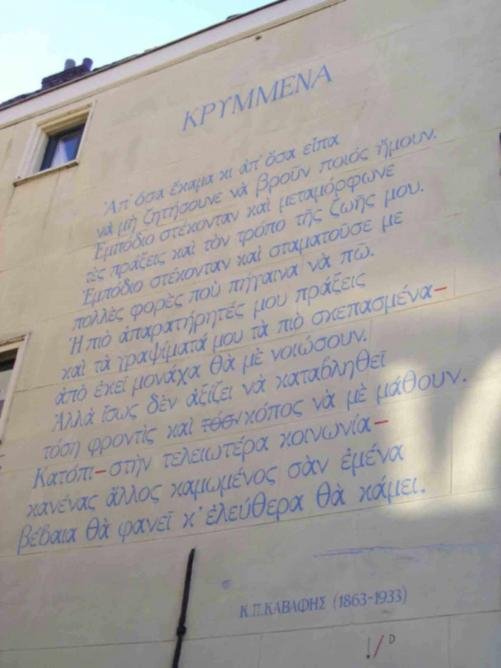 ΚΡΥΜΜΕΝΑ
Ἀπ' ὅσα ἔκαμα κι ἀπ' ὅσα εἶπα
νὰ μὴ ζητήσουνε νὰ βροῦν ποιός ἤμουν.
Ἐμπόδιο στέκονταν καὶ μεταμόρφωνε
τὲς πράξεις καὶ τὸν τρόπο τῆς ζωῆς μου.
Ἐμπόδιο στέκονταν καὶ σταματοῦσε με
πολλὲς φορὲς ποὺ πήγαινα νὰ πῶ.
Ἡ πιὸ ἀπαρατήρητές μου πράξεις
καὶ τὰ γραψίματά μου τὰ πιὸ σκεπασμένα–
ἀπὸ ἐκεῖ μονάχα θὰ μὲ νοιώσουν.
Ἀλλὰ ἴσως δὲν ἀξίζει νὰ καταβληθεῖ
τόση φροντὶς καὶ τόσ· κόπος νὰ μὲ μάθουν.
Κατόπι–στὴν τελειωτέρα κοινωνία–
κανένας ἄλλος καμωμένος σὰν ἐμένα
βέβαια θὰ φανεῖ κ' ἐλεύθερα θὰ κάμει.
Κ.Π.ΚΑΒΑΦΗΣ (1863-1933)